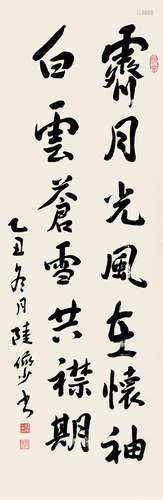 霽月光風在懷袖
白雲蒼雪共襟期
乙丑冬月陸儼少書